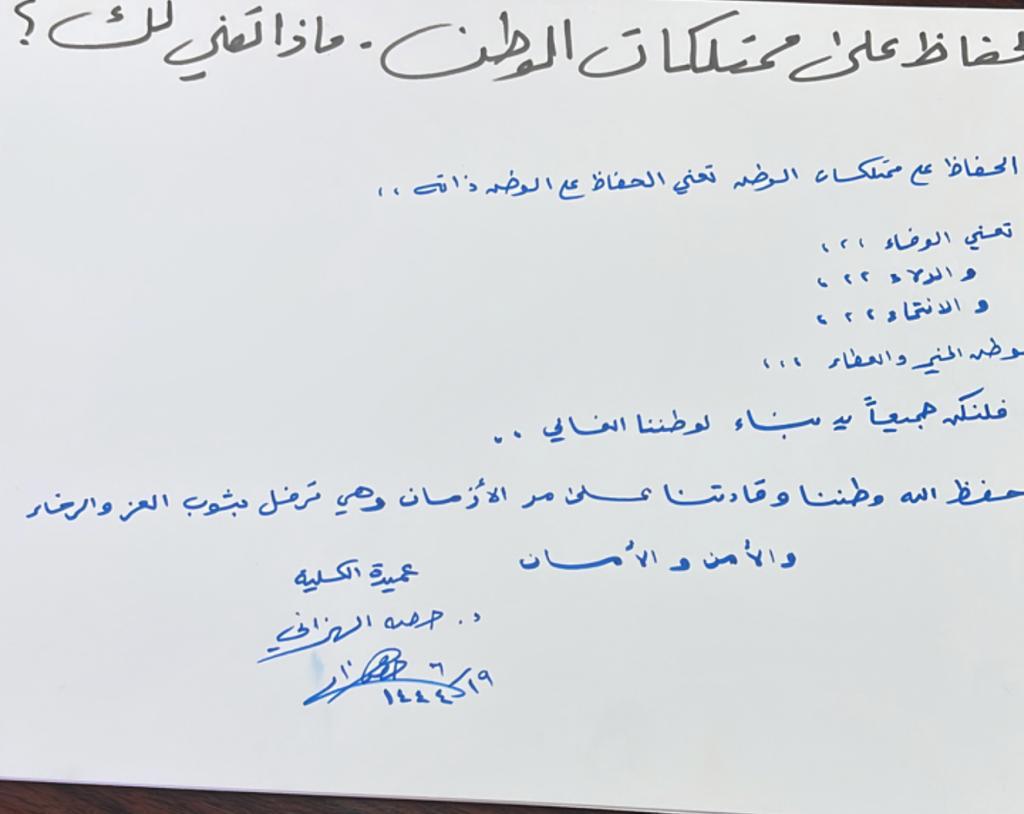 الحفاظ على ممتلكات الوطن . ماذا تعني لك ؟
الحفاظ على ممتلكات الوطن تعني الحفاظ على الوطن ذاته ،،
تعني الوفاء ،،،
و الولاء ،،،
و الانتماء ،،،
لوطن الخير والعطاء ،،،
فلنكن جميعاً يد بناء لوطننا الغالي ..
حفظ الله وطننا وقادتنا على مر الأزمان وهي ترفل بثوب العز والرخاء
والأمن و الأمان
عميدة الكلية
د. حصه الهزاني
١٩/ ٦ /١٤٤٤